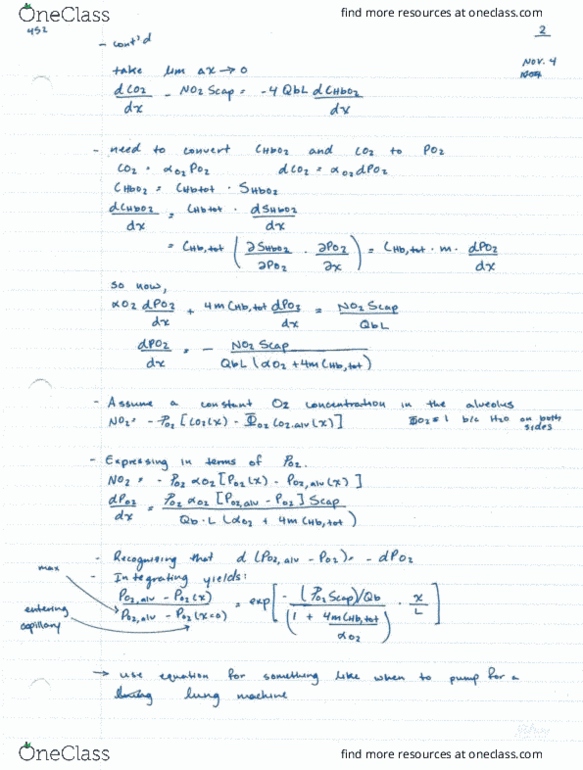 OneClass find more resources at oneclass.com
452
2
- cont'd
Nov. 4
take lim Δx → 0
dCO2/dx - NO2 Scap = -4 QbL dCHbO2/dx
- need to convert CHbO2 and CO2 to PO2
CO2 = αO2 PO2 dCO2 = αO2 dPO2
CHbO2 = CHbtot · SHbO2
dCHbO2/dx = CHbtot · dSHbO2/dx
= CHb,tot (∂SHbO2/∂PO2 · ∂PO2/∂x) = CHb,tot · m · dPO2/dx
so now,
αO2 dPO2/dx + 4mCHb,tot dPO2/dx = NO2 Scap/QbL
dPO2/dx = - NO2 Scap/QbL (αO2 + 4mCHb,tot)
- Assume a constant O2 concentration in the alveolus
NO2 = - PO2 [CO2(x) - ΦO2 CO2,alv (x)] ΦO2 = 1 b/c H2O on both sides
- Expressing in terms of PO2.
NO2 = - PO2 αO2 [PO2(x) - PO2,alv (x)]
dPO2/dx = PO2 αO2 [PO2,alv - PO2] Scap/Qb·L (αO2 + 4mCHb,tot)
- Recognizing that d (PO2,alv - PO2) = - dPO2
max
- Integrating yields:
PO2,alv - PO2(x)/PO2,alv - PO2(x=0) = exp[- (PO2 Scap)/Qb/(1 + 4mCHb,tot/αO2) · x/L]
entering capillary
→ use equation for something like when to pump for a
lung machine
OneClass find more resources at oneclass.com